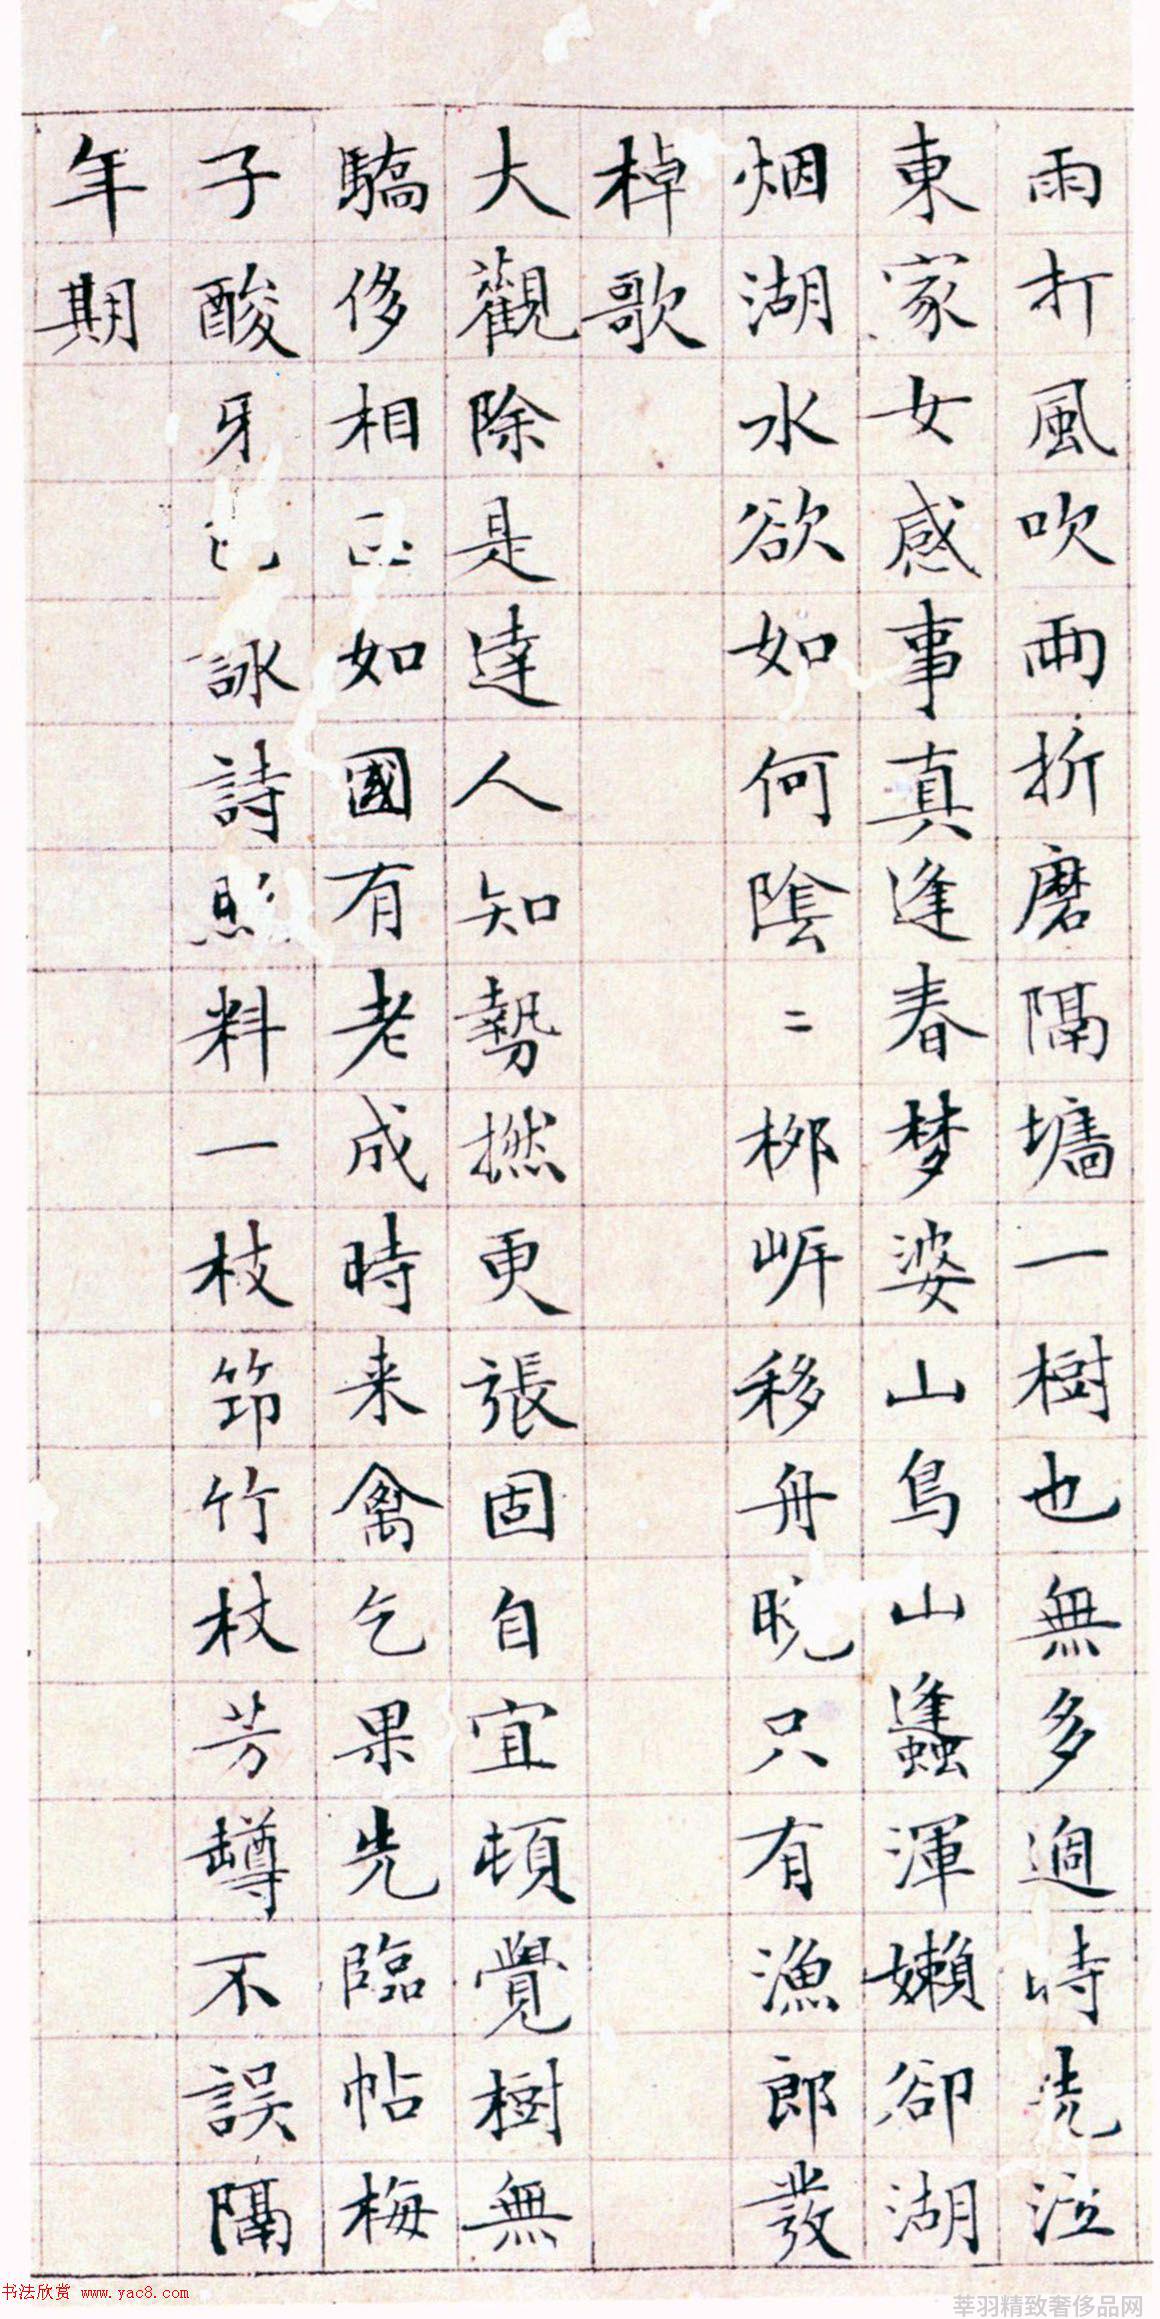 雨打風吹雨折磨隔墻一樹也無多過時洗泣
東家女感事真逢春梦婆山鳥山蠭渾嬾卻湖
烟湖水欲如何陰二柳岍移舟晚只有漁郎發
棹歌
大觀除是達人知勢撚更張固自宜頓覺樹無
驕侈相如國有老成時来禽乞果先臨帖梅
子酸牙詠詩料一枝笻竹杖芳罇不誤隔
年期
书法欣赏 www.yac8.com
莘羽精致奢侈品网